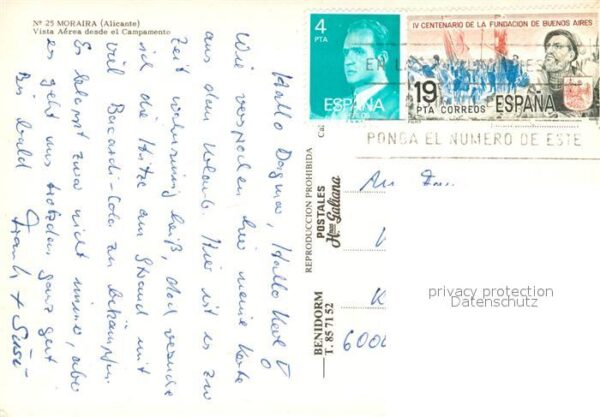 Nº 25 MORAIRA (Alicante)
Vista Aérea desde el Campamento
Hallo Dagmar, Hallo Karl!
Wie versprochen, hier meine Karte
aus dem Urlaub. Hier ist es zur
Zeit wahnsinnig heiß, doch
sich die Hitze am Strand mit
viel Bacardi-Cola zu bekämpfen.
Es klappt zwar nicht immer, aber
es geht uns trotzdem ganz gut
Bis bald
Frank + Susi
Ca
REPRODUCCION PROHIBIDA
POSTALES
Hnos. Galiana
BENIDORM
T. 85 71 52
4
PTA
ESPAÑA
IV CENTENARIO DE LA FUNDACION DE BUENOS AIRES
19
PTA
CORREOS
ESPAÑA
EN LA
PONGA EL NUMERO DE ESTE
An Fam.
K
6000
privacy protection
Datenschutz